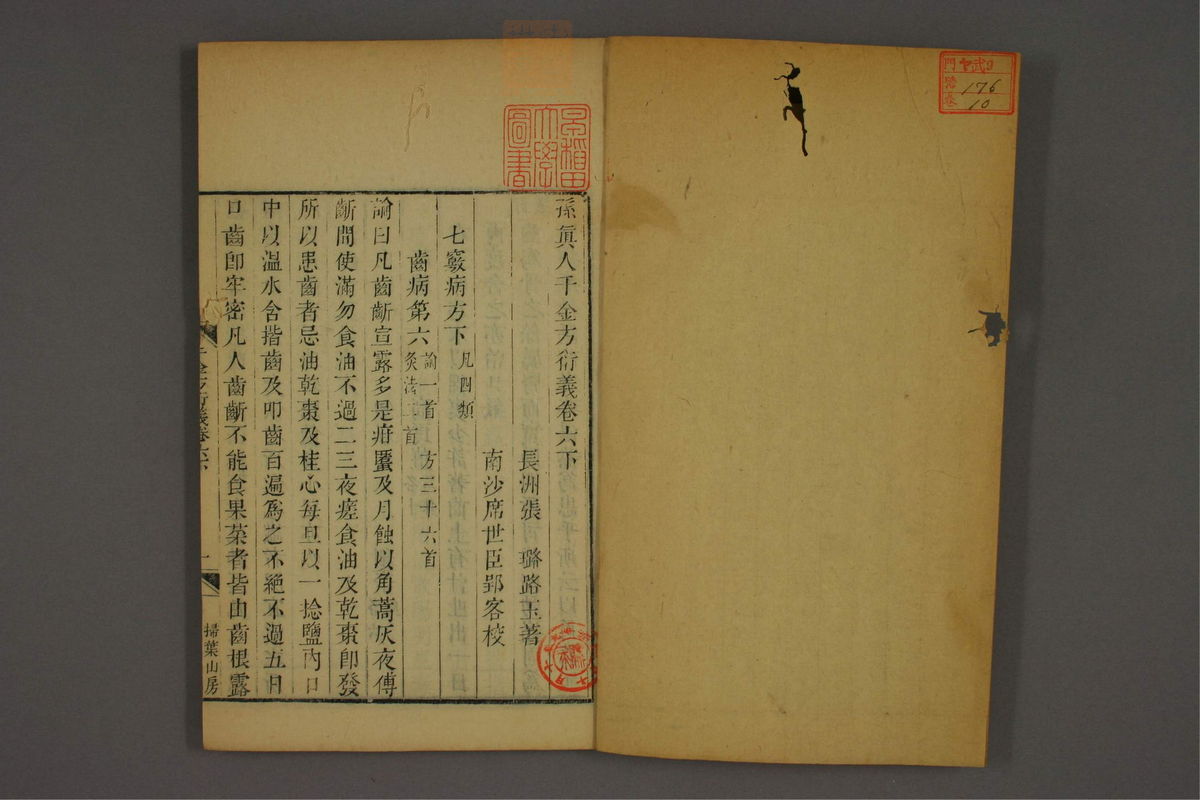 孫眞人千金方衍義卷六下
長洲張　璐路玉著
南沙席世臣郢客校
七竅病方下凡四類
齒病第六論一首　方三十六首
灸法二首
論曰凡齒齗宣露多是疳䘌及月蝕以角蒿灰夜傅
齗間使滿勿食油不過二三夜瘥食油及乾棗即發
所以患齒者忌油乾棗及桂心每旦以一捻鹽內口
中以溫水含揩齒及叩齒百遍爲之不絕不過五日
口齒卽牢密凡人齒齗不能食果菜者皆由齒根露
千金方衍義卷六
一
掃葉山房
早稻田
大學
圖書
門
號
卷
176
10